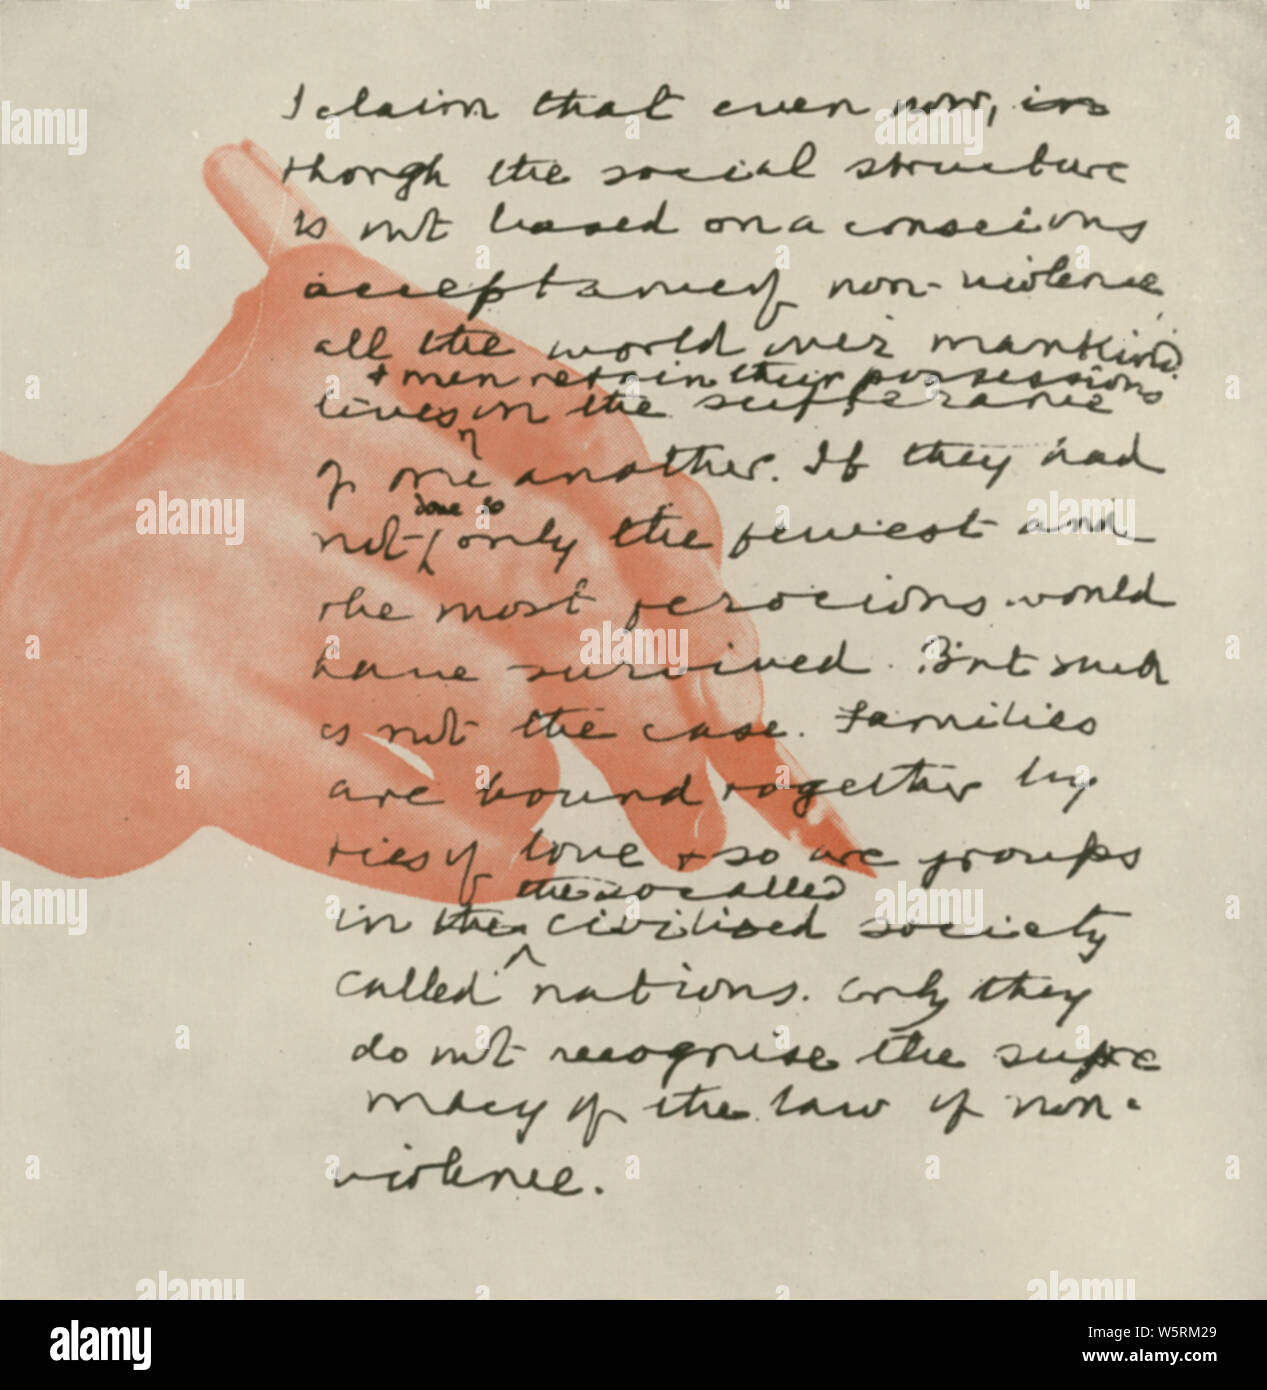 I claim that even now,
though the social structure
is not based on a conscious
acceptance of non-violence,
all the world over mankind
+ men retain their possessions
lives in the sufferance
of one another. If they had
done so
not only the fewest and
the most ferocious would
have survived. But such
is not the case. Families
are bound together by
ties of love + so are groups
the so called
in the civilised society
called nations. Only they
do not recognise the supre
macy of the law of non-
violence.
alamy
Image ID: W5RM29
www.alamy.com